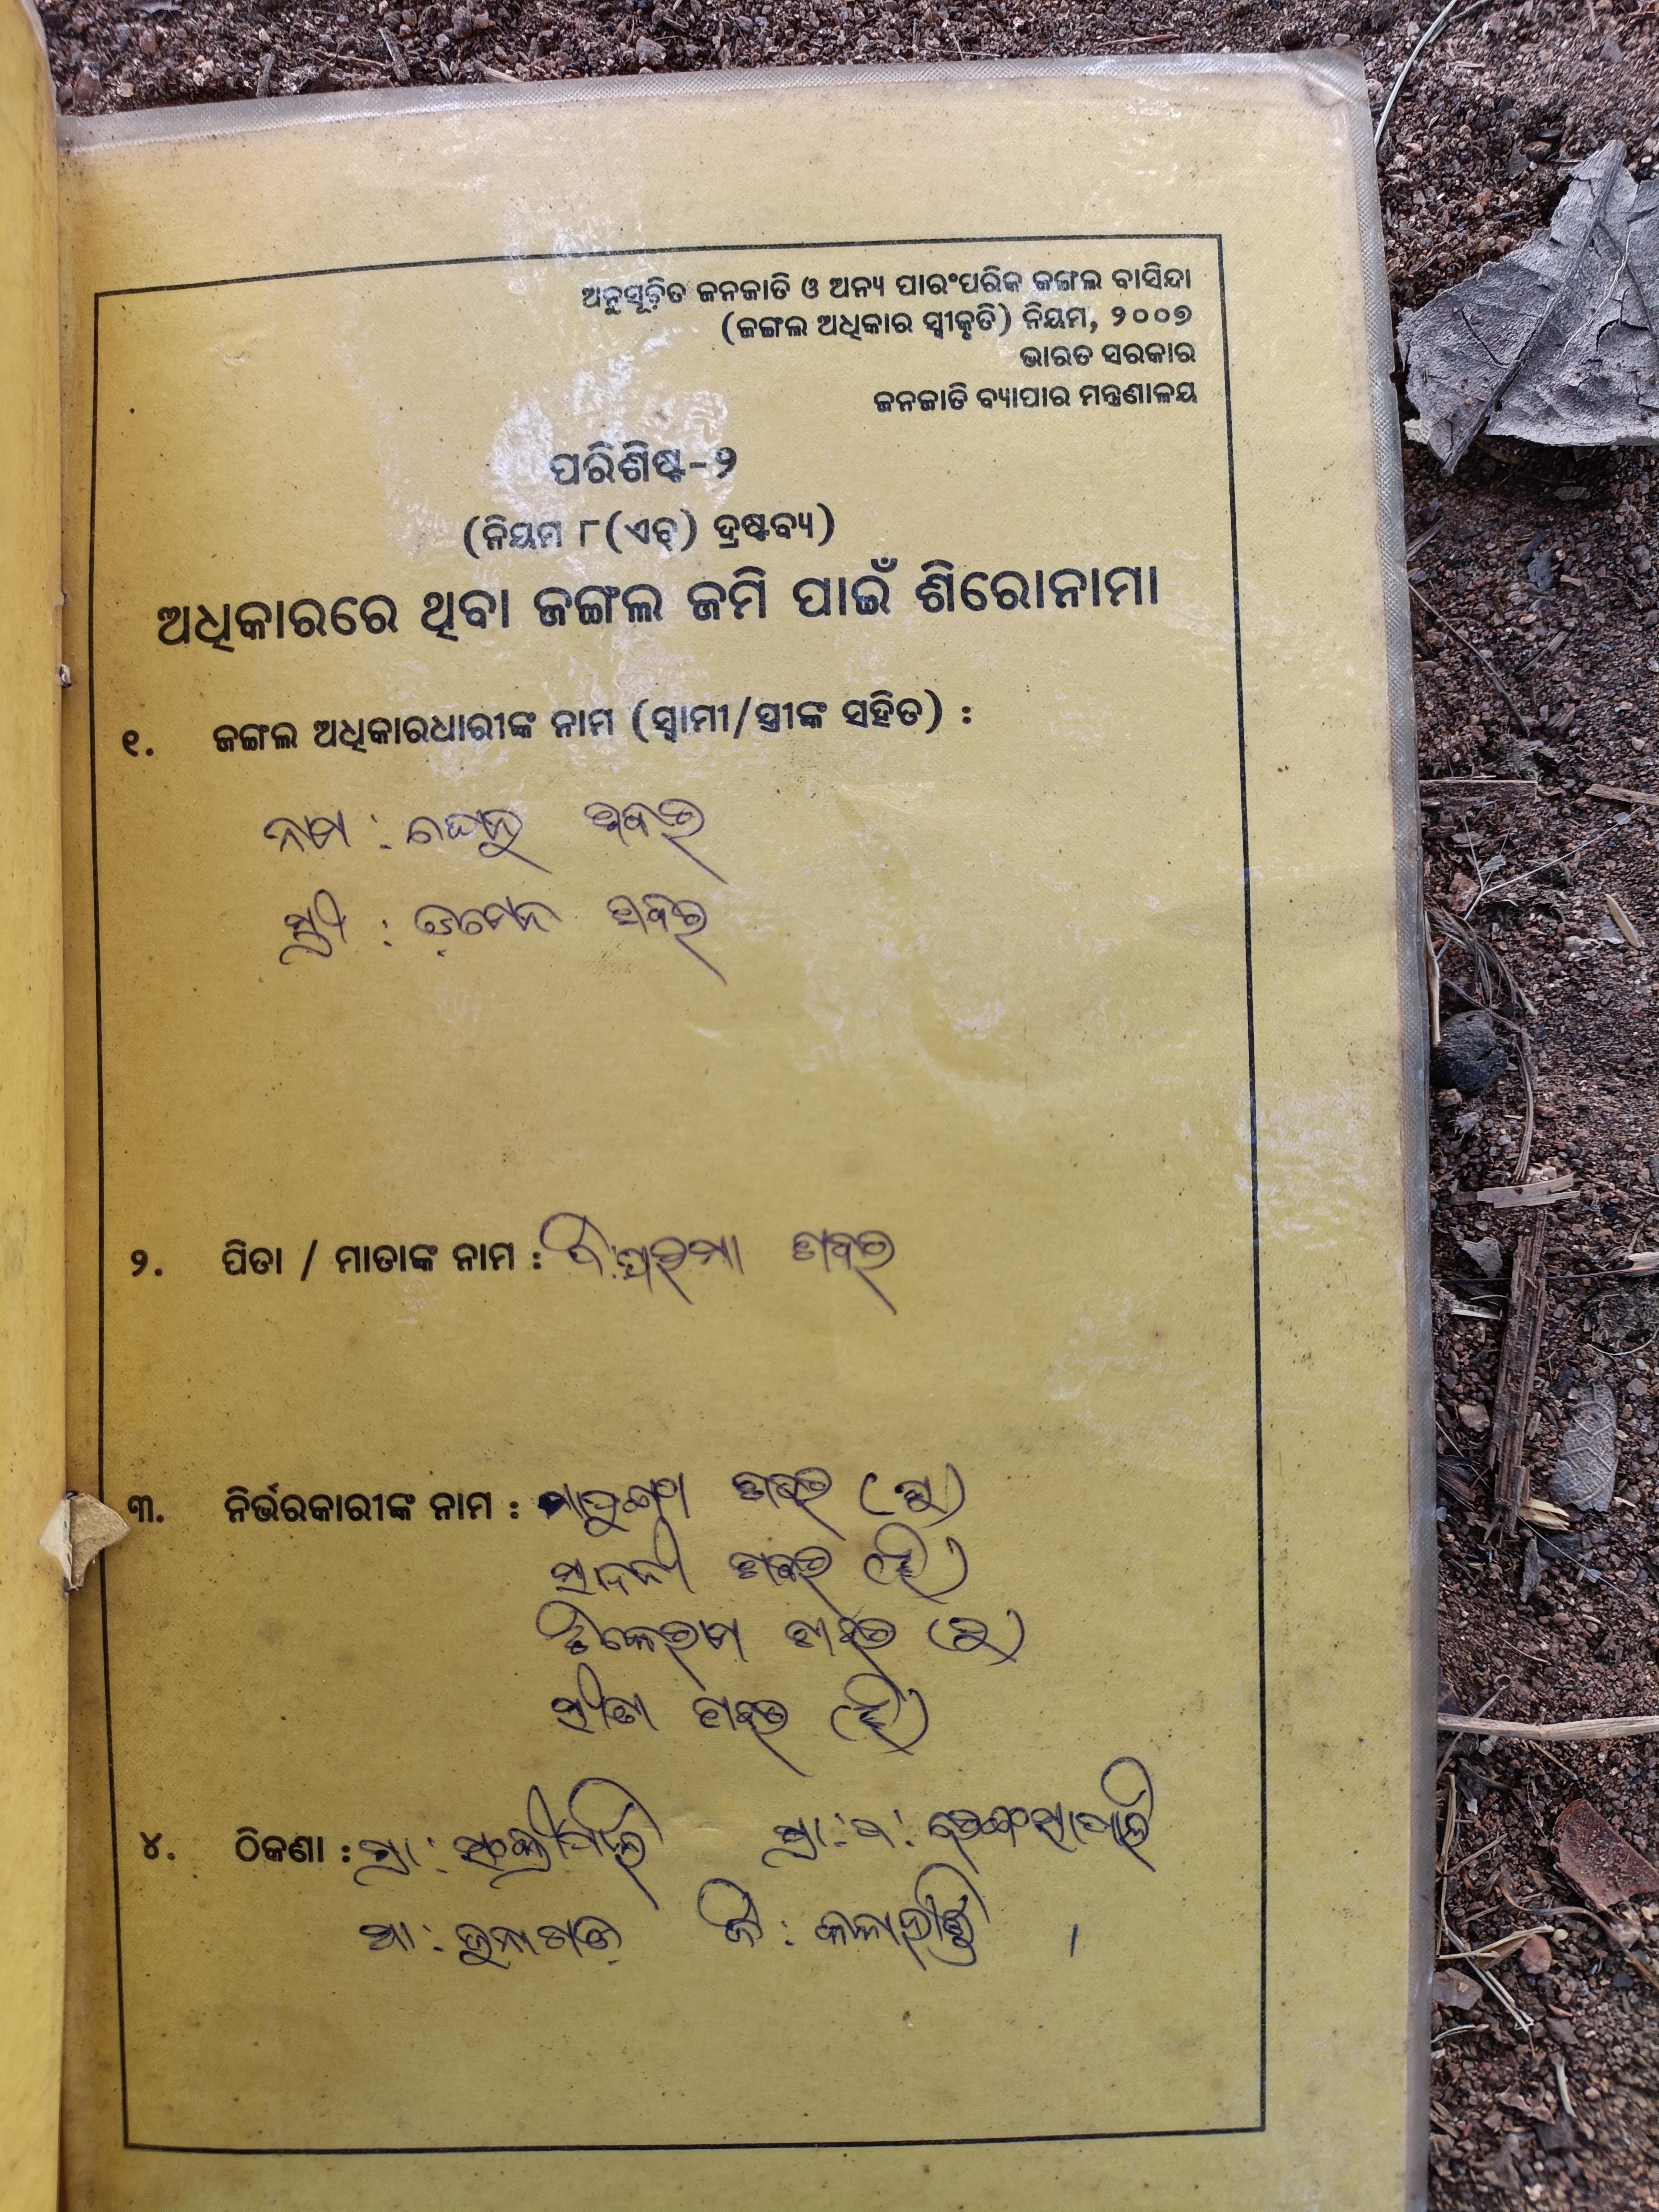 ଅନୁସୂଚିତ ଜନଜାତି ଓ ଅନ୍ୟ ପାରଂପରିକ ଜଙ୍ଗଲ ବାସିନ୍ଦା
(ଜଙ୍ଗଲ ଅଧିକାର ସ୍ୱୀକୃତି) ନିୟମ, ୨୦୦୭
ଭାରତ ସରକାର
ଜନଜାତି ବ୍ୟାପାର ମନ୍ତ୍ରଣାଳୟ
ପରିଶିଷ୍ଟ-୨
(ନିୟମ ୮(ଏଚ୍) ଦ୍ରଷ୍ଟବ୍ୟ)
ଅଧିକାରରେ ଥିବା ଜଙ୍ଗଲ ଜମି ପାଇଁ ଶିରୋନାମା
୧. ଜଙ୍ଗଲ ଅଧିକାରଧାରୀଙ୍କ ନାମ (ସ୍ୱାମୀ/ସ୍ତ୍ରୀଙ୍କ ସହିତ) :
ନାମ : ଘେନୁ ଶବର
ସ୍ତ୍ରୀ : ଶବର
୨. ପିତା / ମାତାଙ୍କ ନାମ : ଶବର
୩. ନିର୍ଭରକାରୀଙ୍କ ନାମ : ଶବର (ପୁ)
ଶବର (ଝି)
ଟିକେରାମ ଶବର (ପୁ)
ସୀତା ଶବର (ଝି)
୪. ଠିକଣା : ଗ୍ରା : ଗ୍ରା : ପ :
ଥା : ଜି : କଳାହାଣ୍ଡି ।